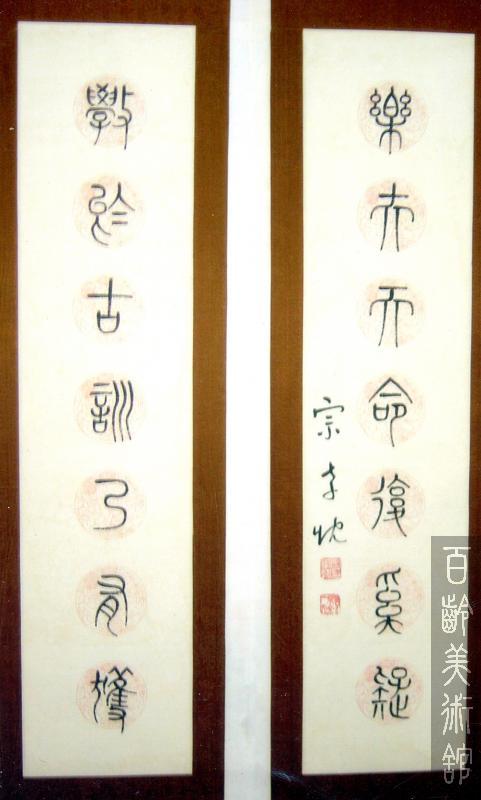 斆於古訓乃有獲
樂夫天命復奚疑
宗孝忱
百齡美術館